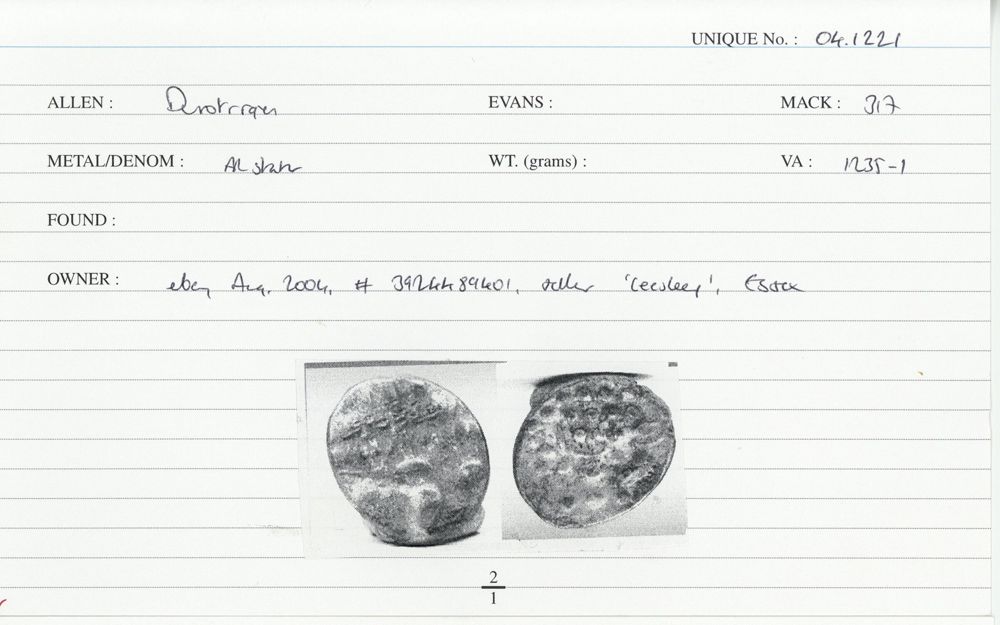 UNIQUE No. : 04.1221
ALLEN : Durotrigan EVANS : MACK : 317
METAL/DENOM : AR stater WT. (grams) : VA : 1235-1
FOUND :
OWNER : ebay Aug. 2004, # 3924489401, seller Essex
2
1